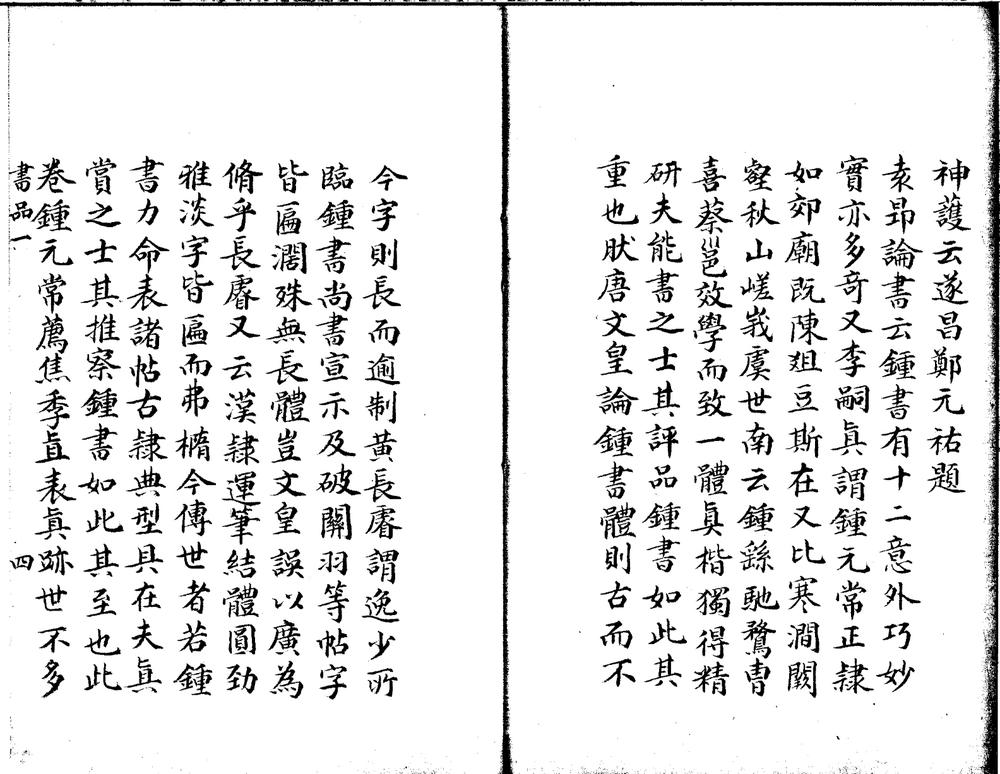 神護云遂昌鄭元祐題
袁昂論書云鍾書有十二意外巧妙
實亦多奇又李嗣眞謂鍾元常正隸
如郊廟既陳爼豆斯在又比寒澗闕
壑秋山嵯峩虞世南云鍾繇馳騖曹
喜蔡邕效學而致一體真楷獨得精
研夫能書之士其評品鍾書如此其
重也肰唐文皇論鍾書體則古而不
今字則長而逾制黃長睿謂逸少所
臨鍾書尚書宣示及破關羽等帖字
皆匾濶殊無長體豈文皇誤以廣為
脩乎長睿又云漢隸運筆結體圓勁
雅淡字皆匾而弗橢今傳世者若鍾
書力命表諸帖古隸典型具在夫眞
賞之士其推察鍾書如此其至也此
卷鍾元常薦焦季直表眞跡世不多
書品一 四